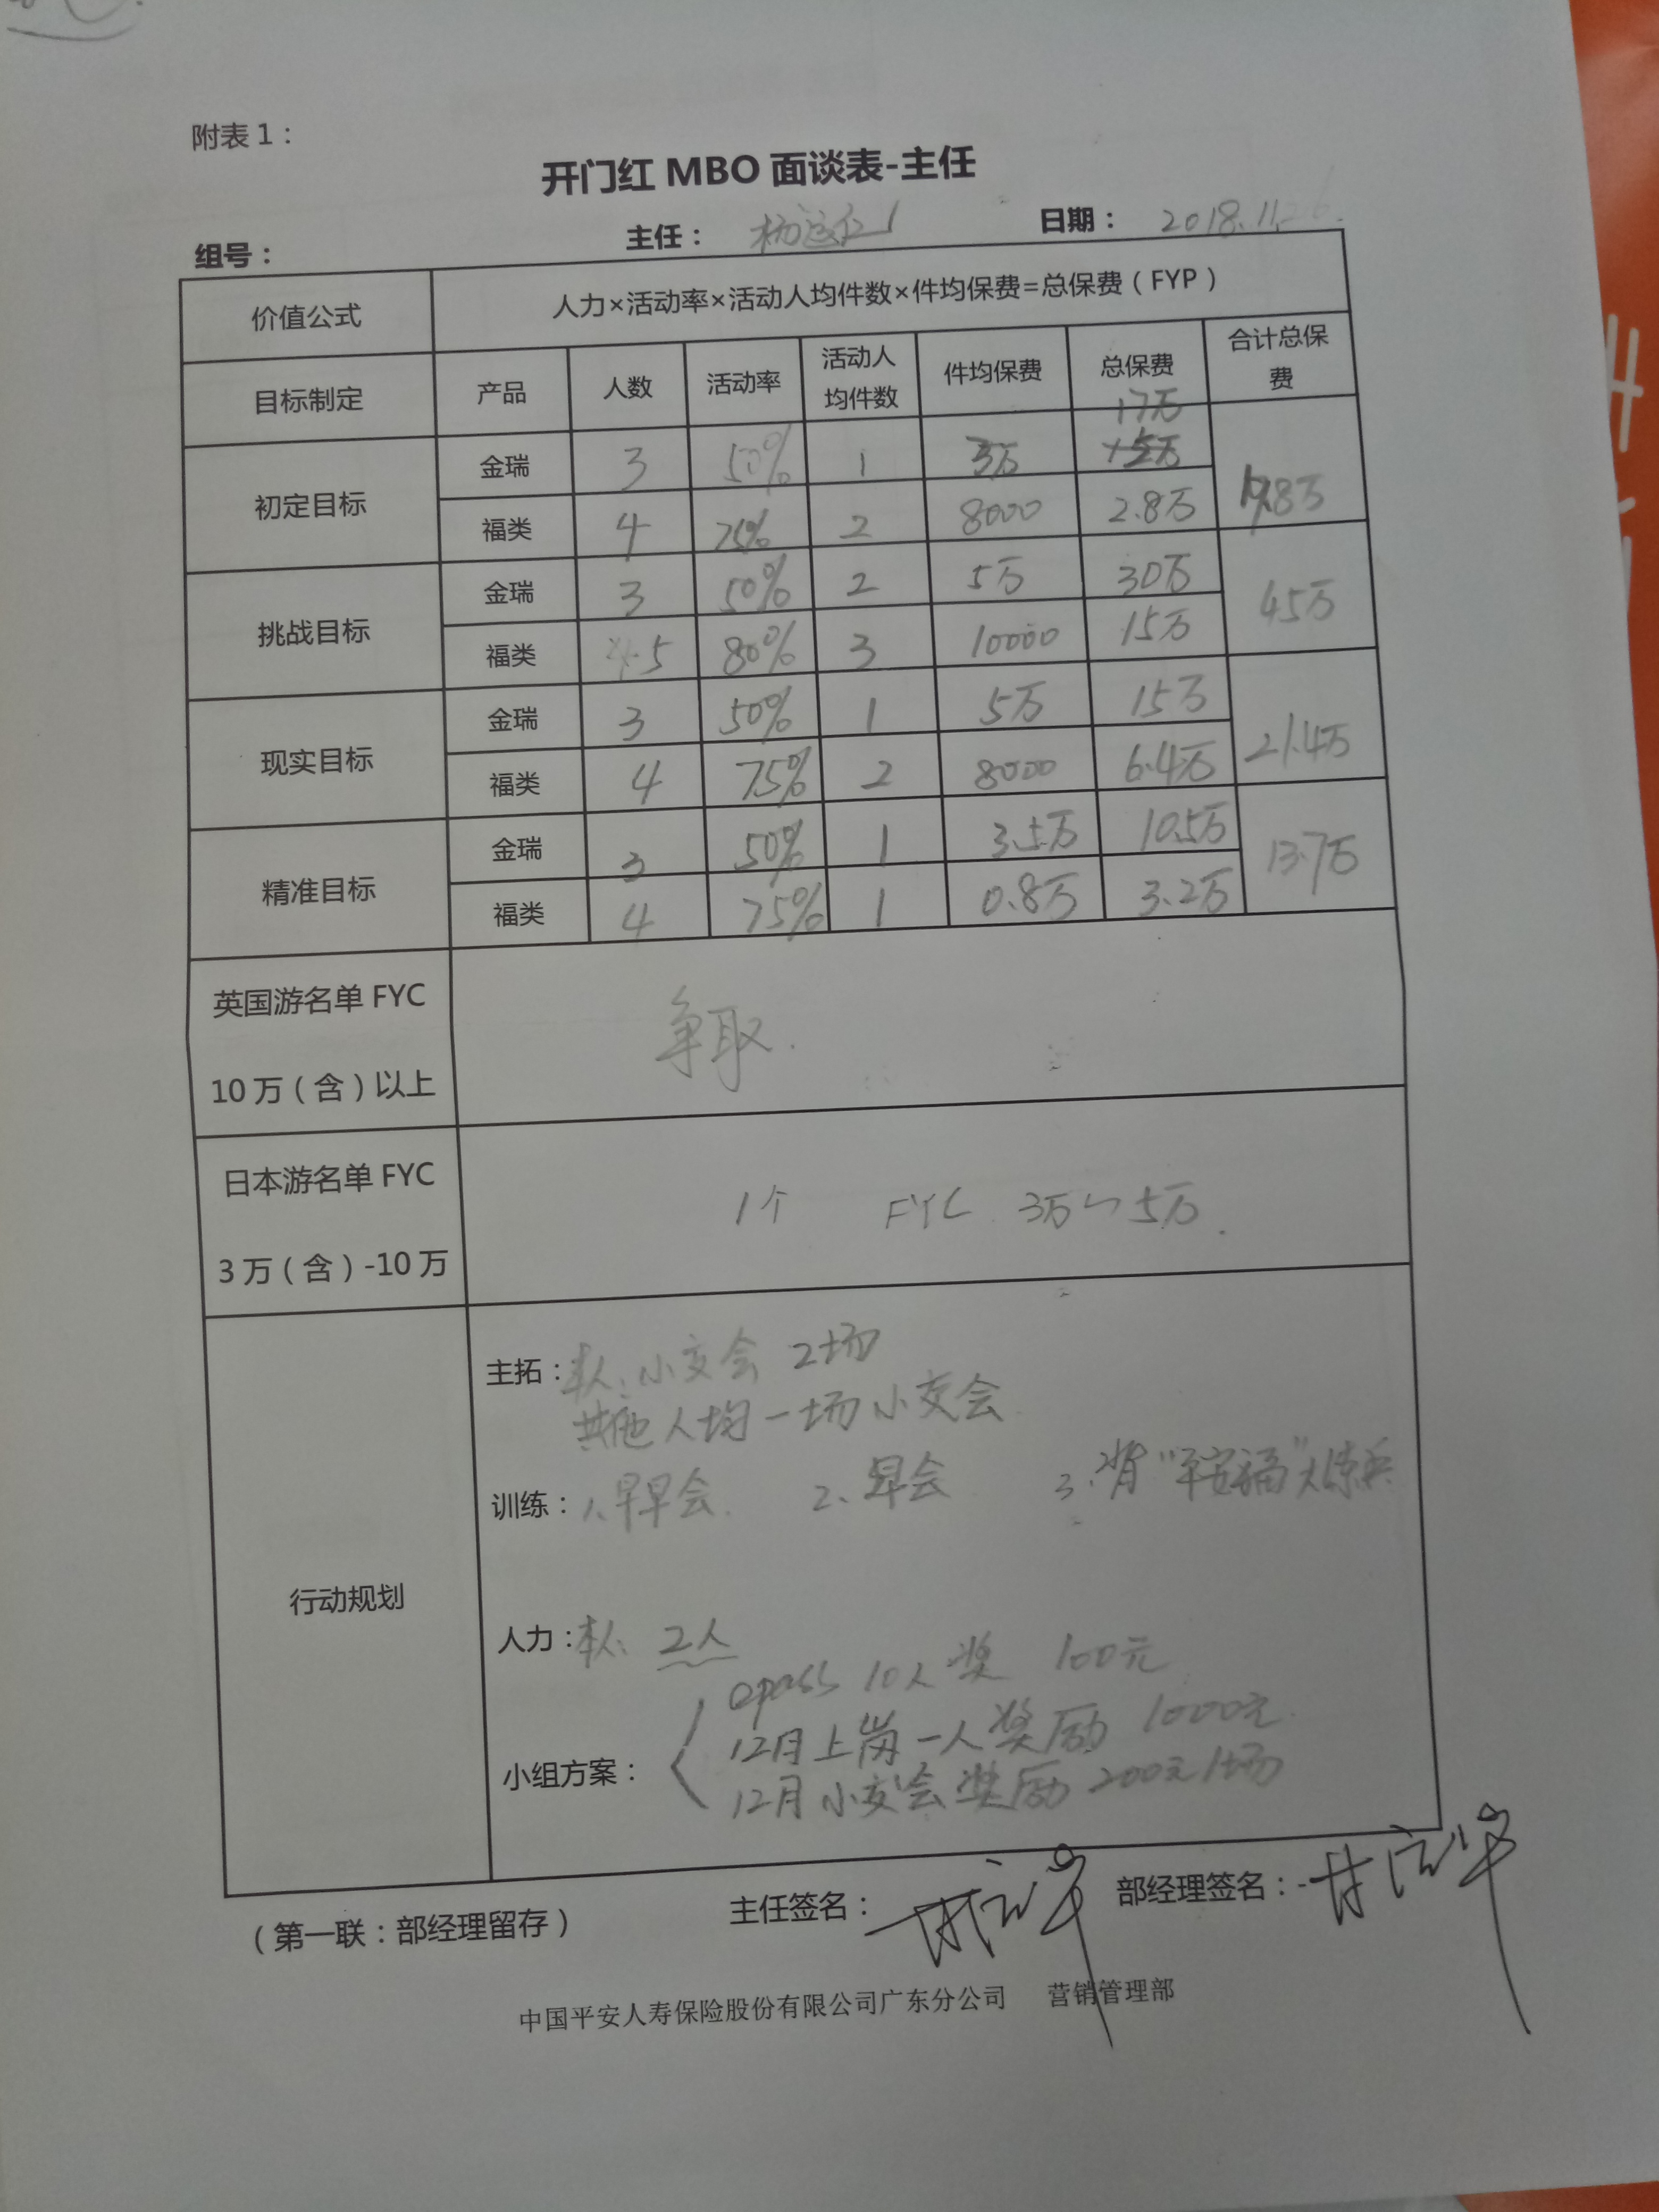 附表1：
开门红 MBO 面谈表-主任
组号： 主任： 日期： 2018.11.26.
价值公式 人力×活动率×活动人均件数×件均保费=总保费（FYP）
目标制定 产品 人数 活动率 活动人均件数 件均保费 总保费 合计总保费
17万
初定目标 金瑞 3 50% 1
福类 4 75% 2 8000 2.8万
挑战目标 金瑞 3 50% 2 5万 30万 45万
福类 5 80% 3 10000 15万
现实目标 金瑞 3 50% 1 5万 15万 21.4万
福类 4 75% 2 8000 6.4万
精准目标 金瑞 3 50% 1 3.5万 10.5万 13.7万
福类 4 75% 1 0.8万 3.2万
英国游名单 FYC
10万（含）以上 争取.
日本游名单 FYC
3万（含）-10万 1个 FYC 3万~5万.
行动规划
主拓：本人：小交会 2场
其他人均一场小交会
训练：1、早早会. 2、早会 3、背“平安福”大练兵
人力：本人：2人
epass 10人 奖 100元
12月上岗一人奖励 1000元
小组方案：
12月小交会奖励 200元1场
（第一联：部经理留存） 主任签名： 部经理签名：
中国平安人寿保险股份有限公司广东分公司 营销管理部